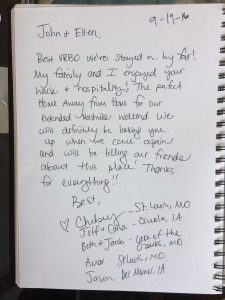 9-19-16
John & Ellen,
Best VRBO we've stayed in by far!
My family and I enjoyed your
house & hospitality! The perfect
Home Away from Home for our
Extended Nashville weekend. We
will definitely be looking you
up when we come again
and will be telling our friends
about this place! Thanks
for everything!!
Best,
- St. Louis, MO
Jeff & Carla - Osceola, IA
Beth & Josh - Lake of the
Ozarks, MO
- St. Louis, MO
Jason Des Moines, IA